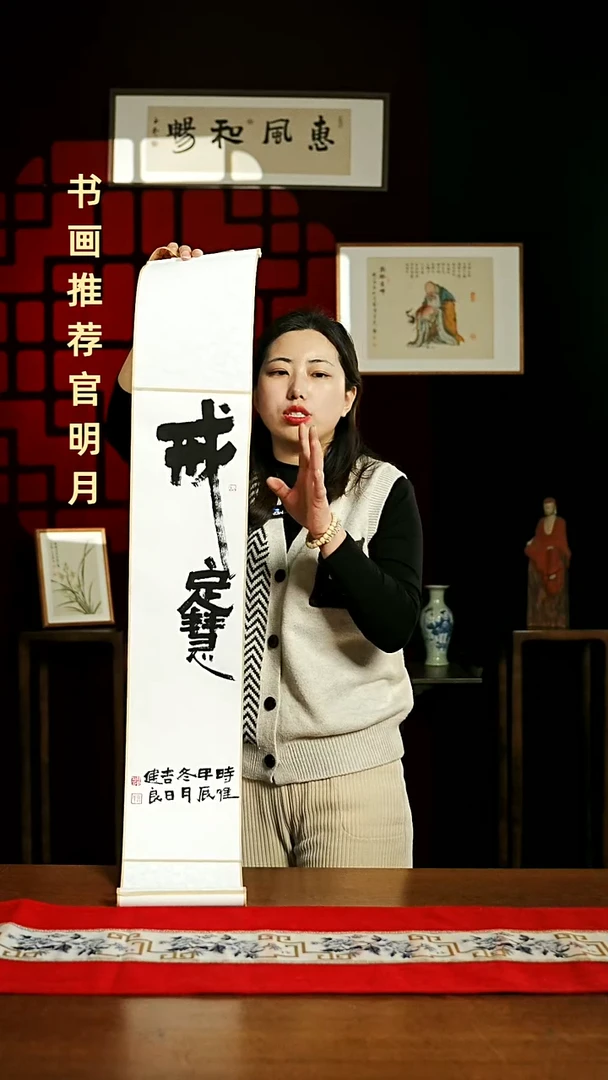 惠風和暢
书画推荐官明月
戒
定慧
時惟
甲辰
冬月
吉日
健良